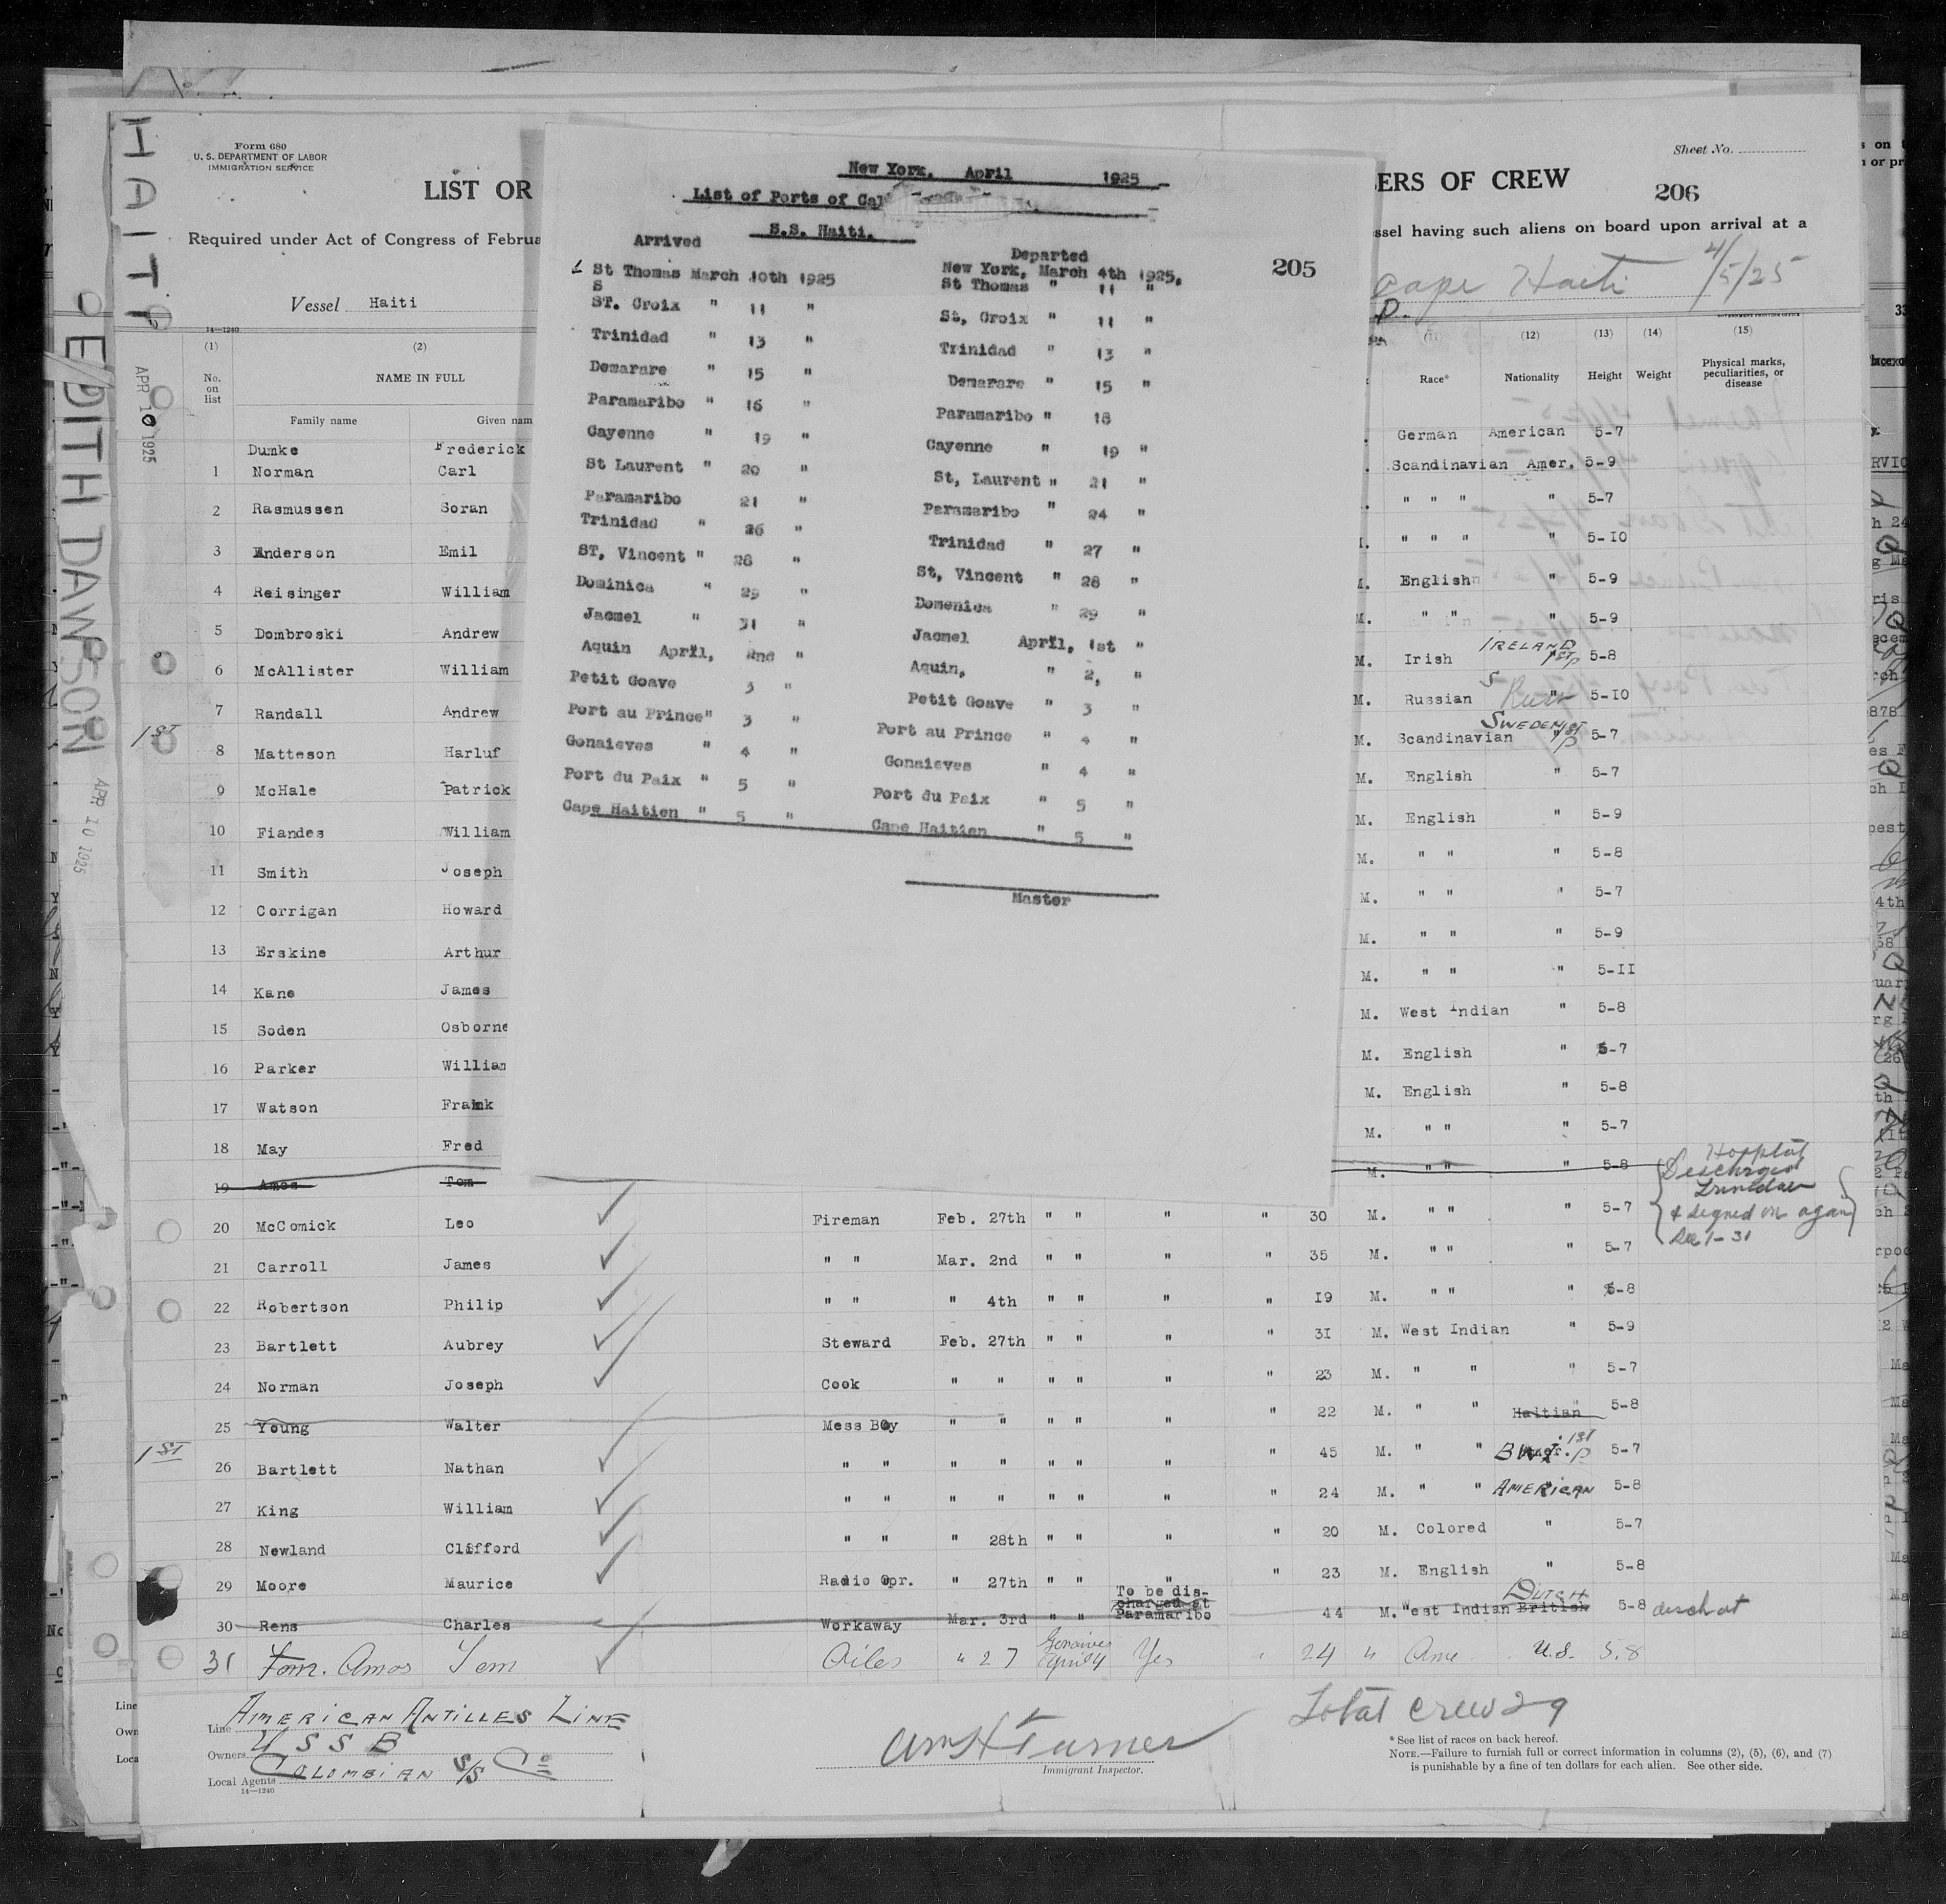 Form 680
U. S. DEPARTMENT OF LABOR
IMMIGRATION SERVICE
Sheet No.
LIST OR
ERS OF CREW
206
Required under Act of Congress of Februa
ssel having such aliens on board upon arrival at a
Cape Haiti 4/5/25
Vessel Haiti
HAITI
EDITH DAWSON
APR 10 1925
APR 10 1925
New York, April 1925
List of Ports of Cal
S.S. Haiti.
205
Arrived Departed
New York, March 4th 1925.
St Thomas March 10th 1925 St Thomas " 11 "
S
ST. Croix " 11 " St, Croix " 11 "
Trinidad " 13 " Trinidad " 13 "
Demarare " 15 " Demarare " 15 "
Paramaribo " 16 " Paramaribo " 18
Cayenne " 19 " Cayenne " 19 "
St Laurent " 20 " St, Laurent " 21 "
Paramaribo 21 " Paramaribo " 24 "
Trinidad " 26 " Trinidad " 27 "
ST, Vincent " 28 " St, Vincent " 28 "
Dominica " 29 " Domenica " 29 "
Jacmel " 31 " Jacmel April, 1st "
Aquin April, 2nd " Aquin, " 2, "
Petit Goave 3 " Petit Goave " 3 "
Port au Prince " 3 " Port au Prince " 4 "
Gonaieves " 4 " Gonaieves " 4 "
Port du Paix " 5 " Port du Paix " 5 "
Cape Haitien " 5 " Cape Haitien " 5 "
Master
14—1240
(1) (2) (12) (13) (14) (15)
No. on list NAME IN FULL Race* Nationality Height Weight Physical marks, peculiarities, or disease
Family name Given nam
Dumke Frederick German American 5-7
1 Norman Carl Scandinavian Amer. 5-9
2 Rasmussen Soran " " " " 5-7
3 Anderson Emil " " " " 5-10
4 Reisinger William English " 5-9
5 Dombroski Andrew M. " " " 5-9
6 McAllister William M. Irish IRELAND 5-8
7 Randall Andrew M. Russian " 5-10
1ST
8 Matteson Harluf M. Scandinavian SWEDEN 5-7
9 McHale Patrick M. English " 5-7
10 Fiandes William M. English " 5-9
11 Smith Joseph M. " " " 5-8
12 Corrigan Howard M. " " " 5-7
13 Erskine Arthur M. " " " 5-9
14 Kane James M. " " " 5-11
15 Soden Osborne M. West Indian " 5-8
16 Parker William M. English " 5-7
17 Watson Frank M. English " 5-8
18 May Fred M. " " " 5-7
19 Amos Tom M. " " " 5-8
Hospital
Descharged
Trinidad
& signed on again
See 1-31
20 McComick Leo Fireman Feb. 27th " " " " 30 M. " " " 5-7
21 Carroll James " " Mar. 2nd " " " " 35 M. " " " 5-7
22 Robertson Philip " " " 4th " " " " 19 M. " " " 5-8
23 Bartlett Aubrey Steward Feb. 27th " " " " 31 M. West Indian " 5-9
24 Norman Joseph Cook " " " " " " 23 M. " " " 5-7
25 Young Walter Mess Boy " " " " " " 22 M. " " Haitian 5-8
1ST
26 Bartlett Nathan " " " " " " " " 45 M. " " B.W.I. 1st P 5-7
27 King William " " " " " " " " 24 M. " " AMERICAN 5-8
28 Newland Clifford " " " 28th " " " " 20 M. Colored " 5-7
29 Moore Maurice Radio Opr. " 27th " " " " 23 M. English " 5-8
30 Rens Charles Workaway Mar. 3rd " " To be discharged at Paramaribo 44 M. West Indian British DUTCH 5-8 desch at
31 Tom. Amos Tom Oiler " 27 Gonaives April 4 Yes " 24 " Ame U.S. 5.8
Line AMERICAN ANTILLES LINE
Owners U S S B
Local Agents COLOMBIAN S/S Co
14—1240
Wm H Turner
Immigrant Inspector.
Total Crew 29
* See list of races on back hereof.
NOTE.—Failure to furnish full or correct information in columns (2), (5), (6), and (7)
is punishable by a fine of ten dollars for each alien. See other side.